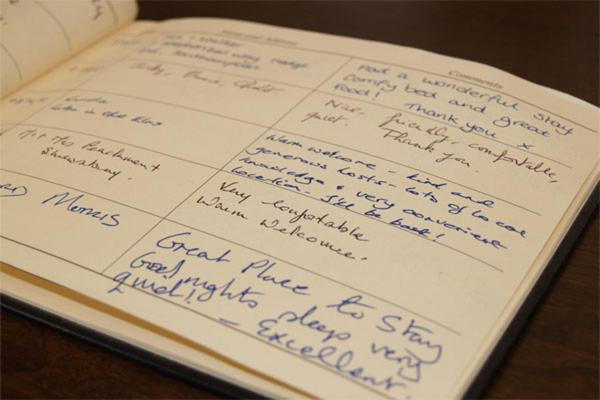 Name and Address
Comments
Had a wonderful stay
Comfy bed and great
food! Thank you x
Nice, friendly, comfortable,
quiet. Thank you.
Warm welcome - kind and
generous hosts - lots of local
knowledge & very convenient
location. I'll be back!
Mr + Mrs Parchment
Shrewsbury.
Very comfortable
Warm Welcome.
Morris
Great Place to Stay
Good nights sleep very
quiet! - Excellent.